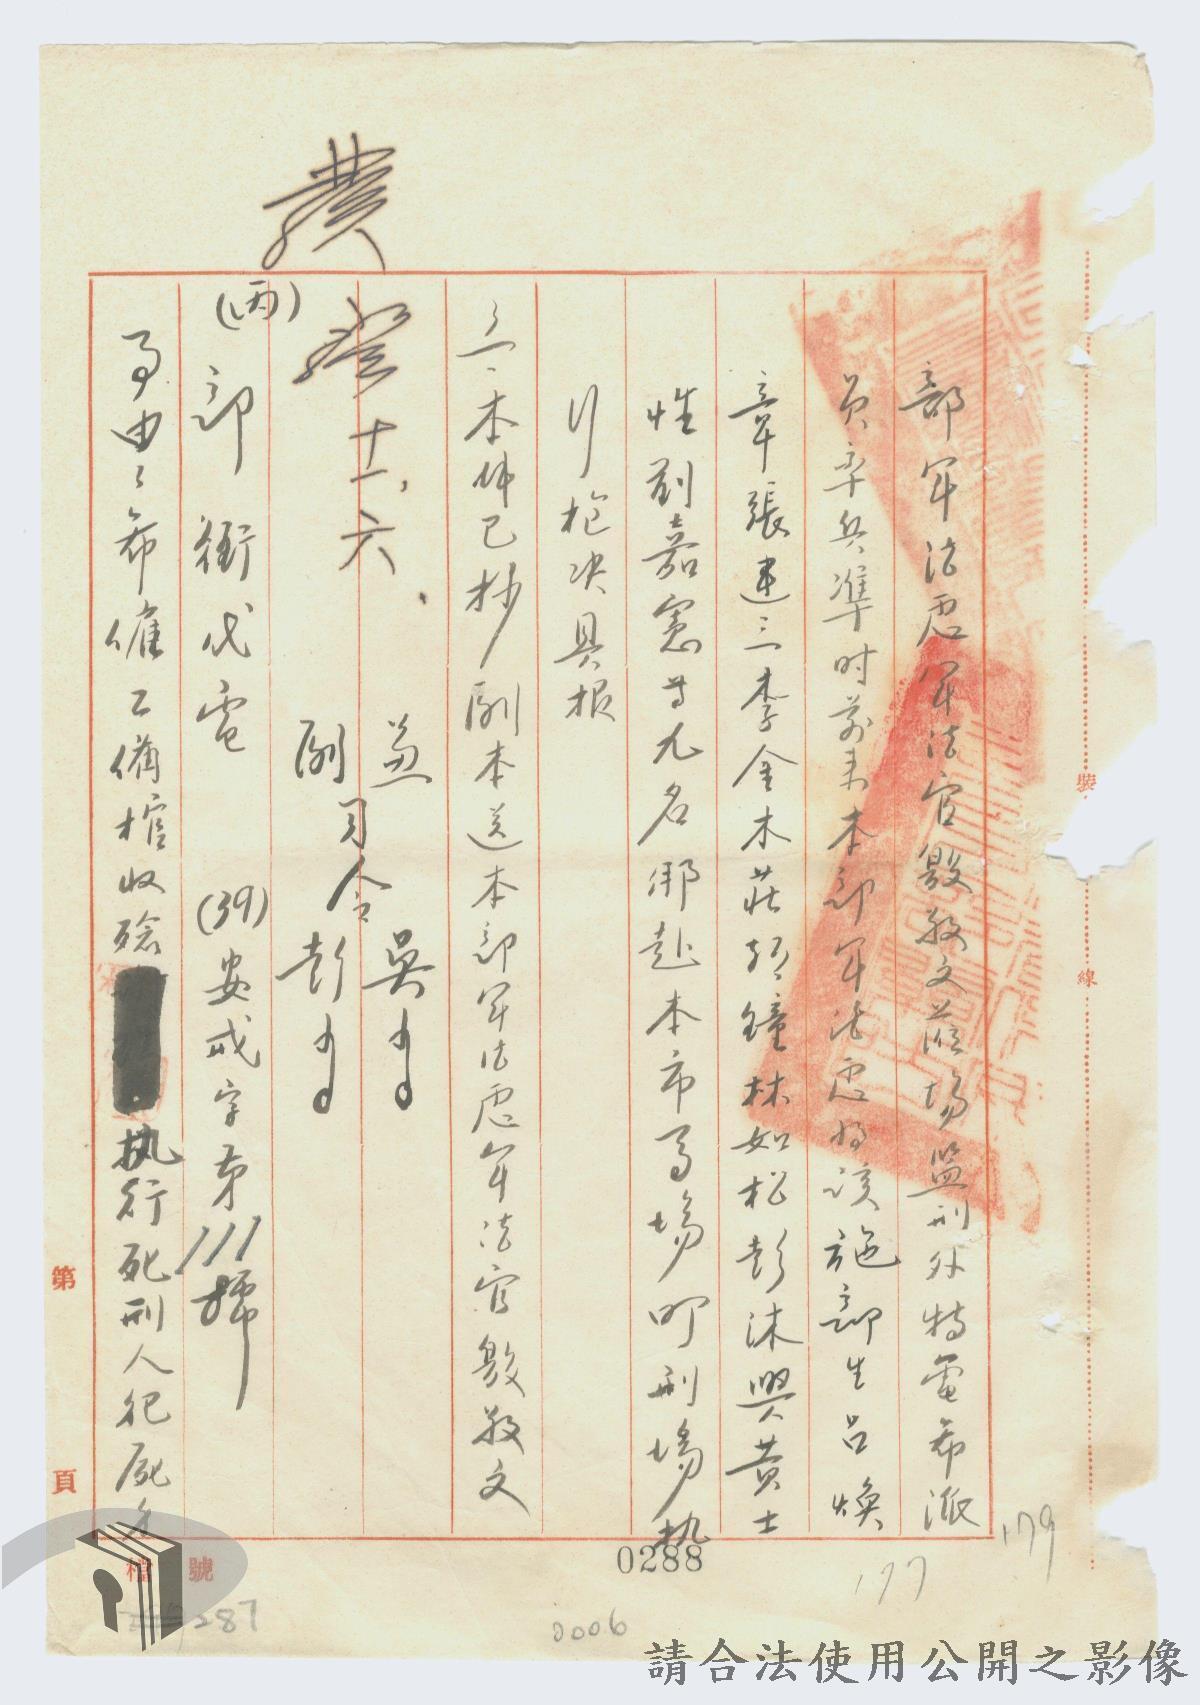 部軍法處軍法官殷敬文蒞場監刑外特電希派
員率兵準時前來本部軍法處將該施部生呂煥
章張建三李金木莊朝鐘林如松彭沐興黃士
性劉嘉憲等九名綁赴本市馬場町刑場執
行槍决具報
二、本件已抄副本送本部軍法處軍法官殷敬文
兼 吳
副司令彭
發十一、六、
(丙)
部銜代電 (39)安戒字第111號
事由：希僱工備棺收殮 执行死刑人犯屍
裝
線
第
頁
檔
號
0288
177
179
287
0006
請合法使用公開之影像